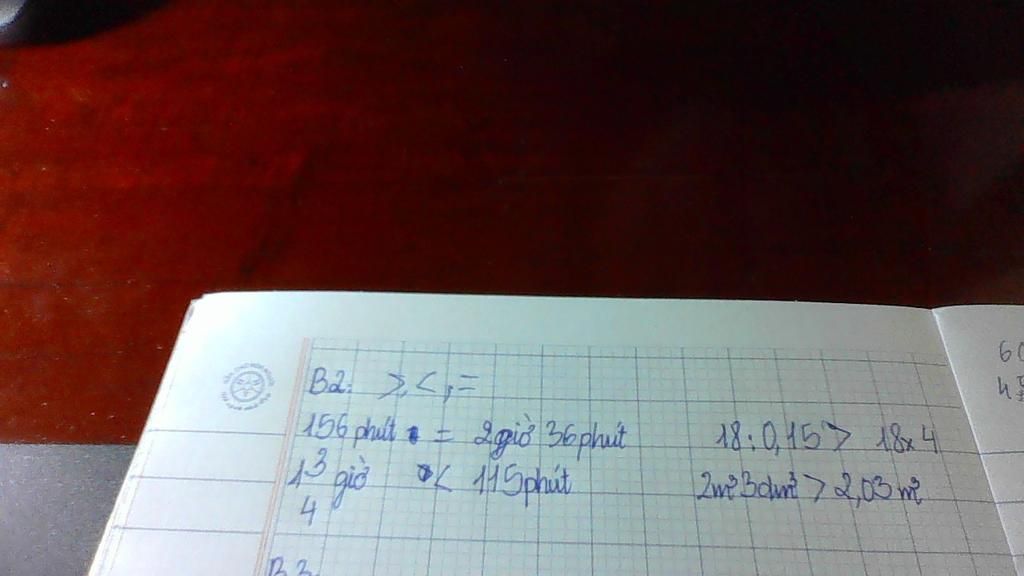 B2: >, <, =
156 phút = 2 giờ 36 phút 18 : 0,15 > 18 x 4
1 3 giờ < 115 phút 2m² 3dm² > 2,03 m²
4
B3
60
4